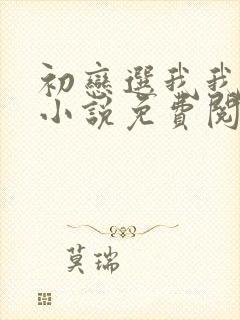 初戀選我我
小說免費閱
莫瑞